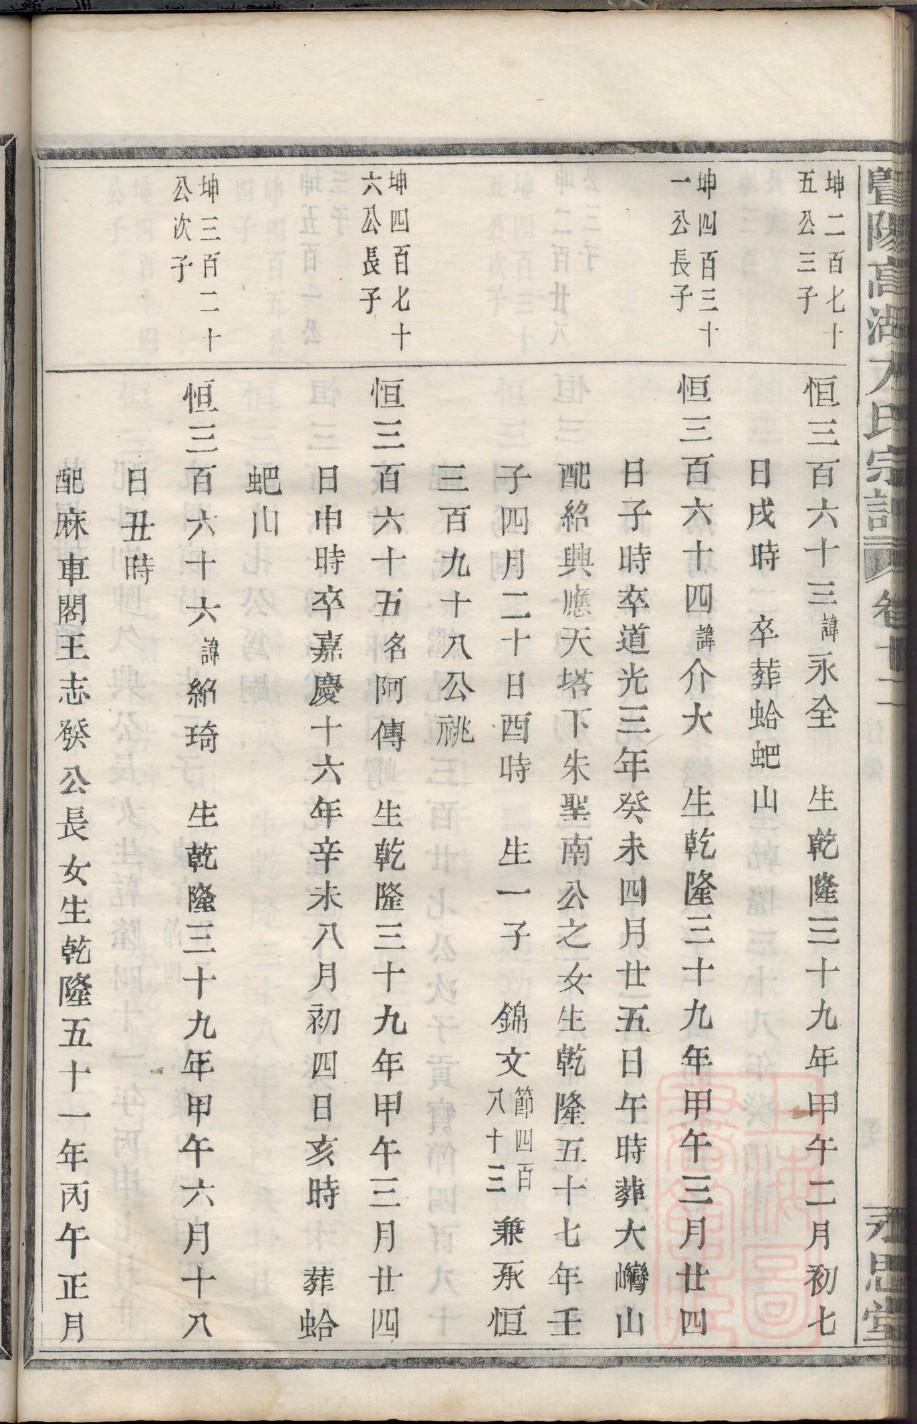 暨陽高湖方氏宗譜 卷十二
永思堂
坤二百七十
五公三子
恒三百六十三諱永全 生乾隆三十九年甲午二月初七
日戌時 卒葬蛤蚆山
坤四百三十
一公長子
恒三百六十四諱介大 生乾隆三十九年甲午三月廿四
日子時卒道光三年癸未四月廿五日午時葬大巒山
配紹興應天塔下朱聖南公之女生乾隆五十七年壬
子四月二十日酉時 生一子 錦文節四百八十三 兼承恒
三百九十八公祧
坤四百七十
六公長子
恒三百六十五名阿傳 生乾隆三十九年甲午三月廿四
日申時卒嘉慶十六年辛未八月初四日亥時 葬蛤
蚆山
坤三百二十
公次子
恒三百六十六諱紹琦 生乾隆三十九年甲午六月十八
日丑時
配麻車閣王志發公長女生乾隆五十一年丙午正月